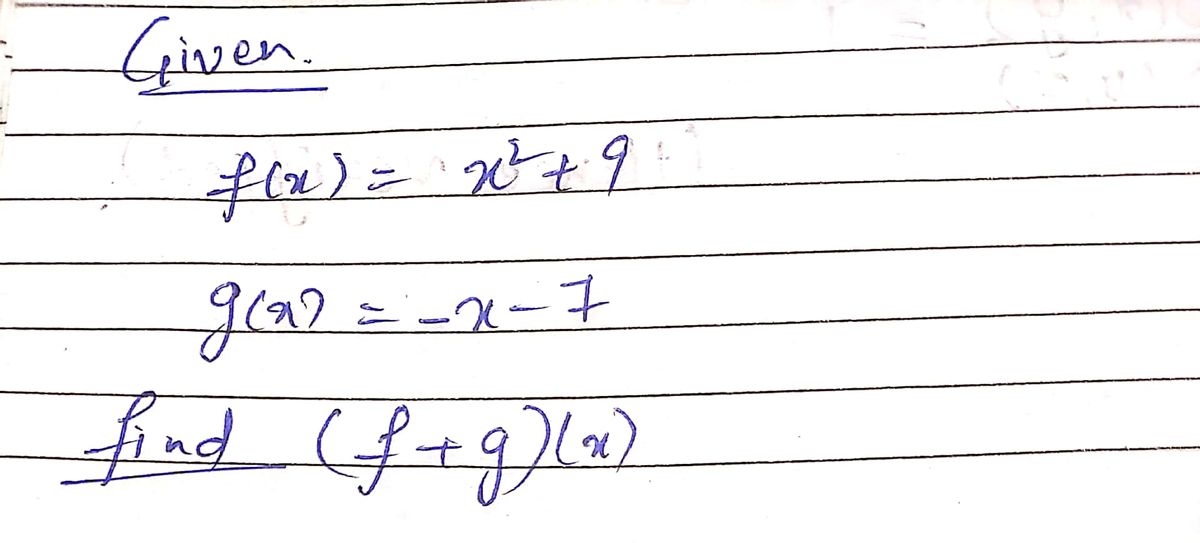 Given.
f(x) = x² + 9
g(x) = -x - 7
find (f+g)(x)